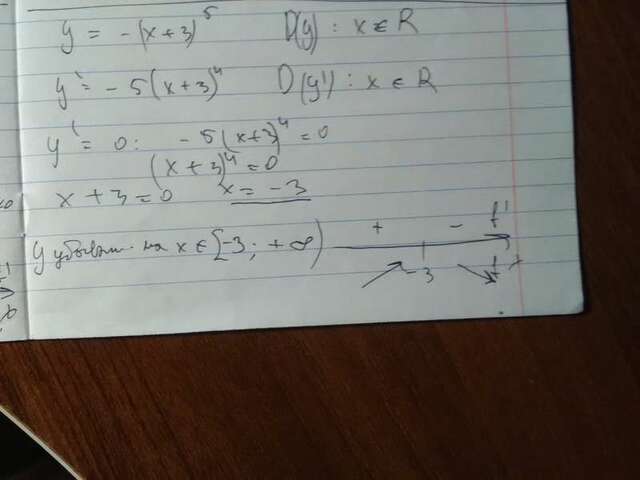 y = -(x+3)^5 D(y): x ∈ R
y' = -5(x+3)^4 D(y'): x ∈ R
y' = 0: -5(x+3)^4 = 0
(x+3)^4 = 0
x + 3 = 0 x = -3
+ - f'
y убывает на x ∈ [-3; +∞)
-3 f x